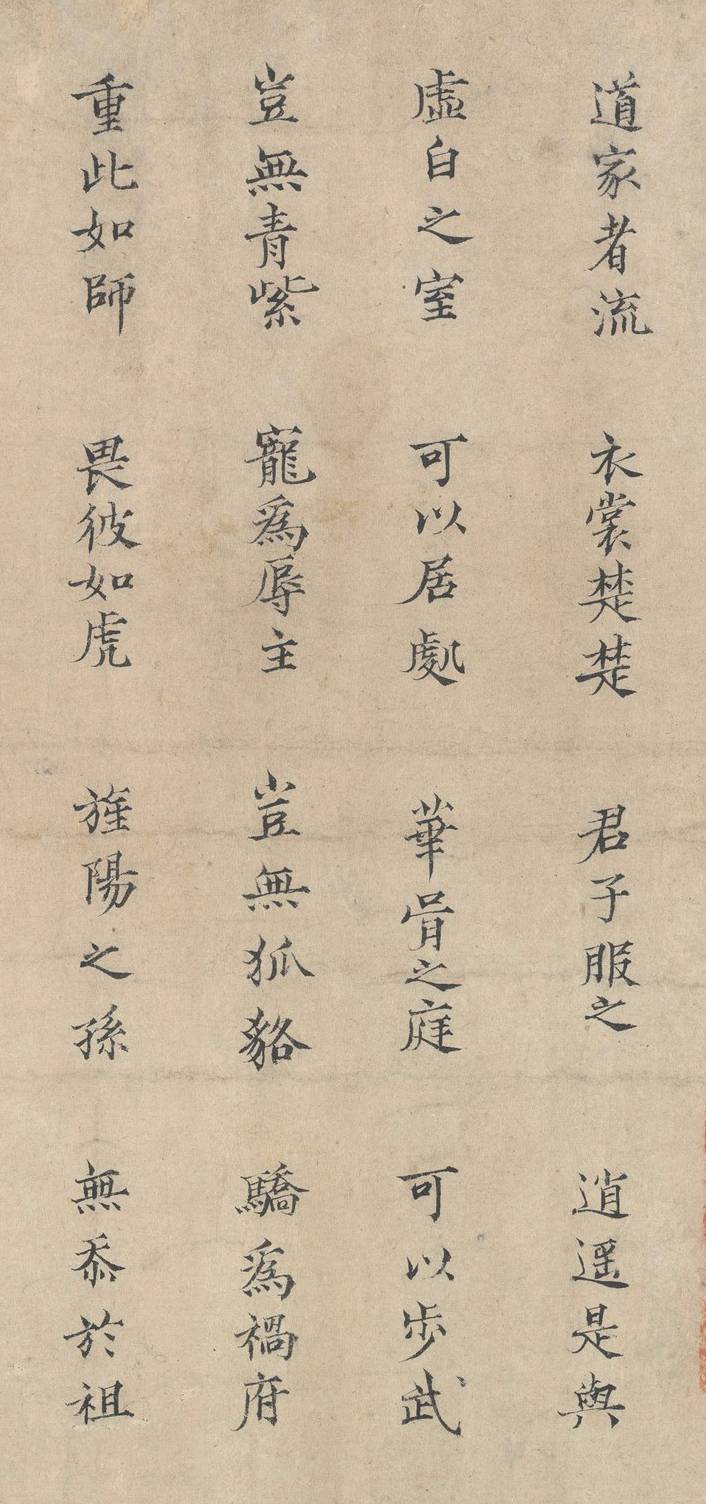 道家者流　衣裳楚楚　君子服之　逍遥是與
虛白之室　可以居處　華胥之庭　可以步武
豈無青紫　寵為辱主　豈無狐貉　驕為禍府
重此如師　畏彼如虎　旌陽之孫　無忝於祖